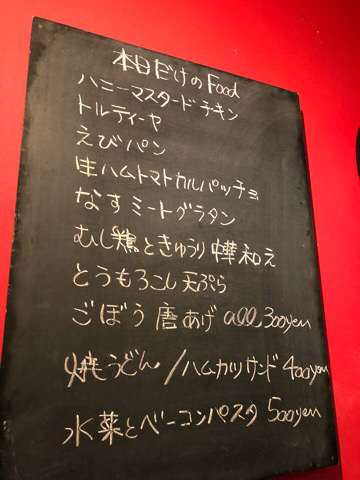 本日だけのFood
ハニーマスタードチキン
トルティーヤ
えびパン
生ハムトマトカルパッチョ
なすミートグラタン
むし鶏ときゅうり 和え
とうもろこし天ぷら
ごぼう唐あげ all 300yen
焼うどん/ハムカツサンド 400yen
水菜とベーコンパスタ 500yen